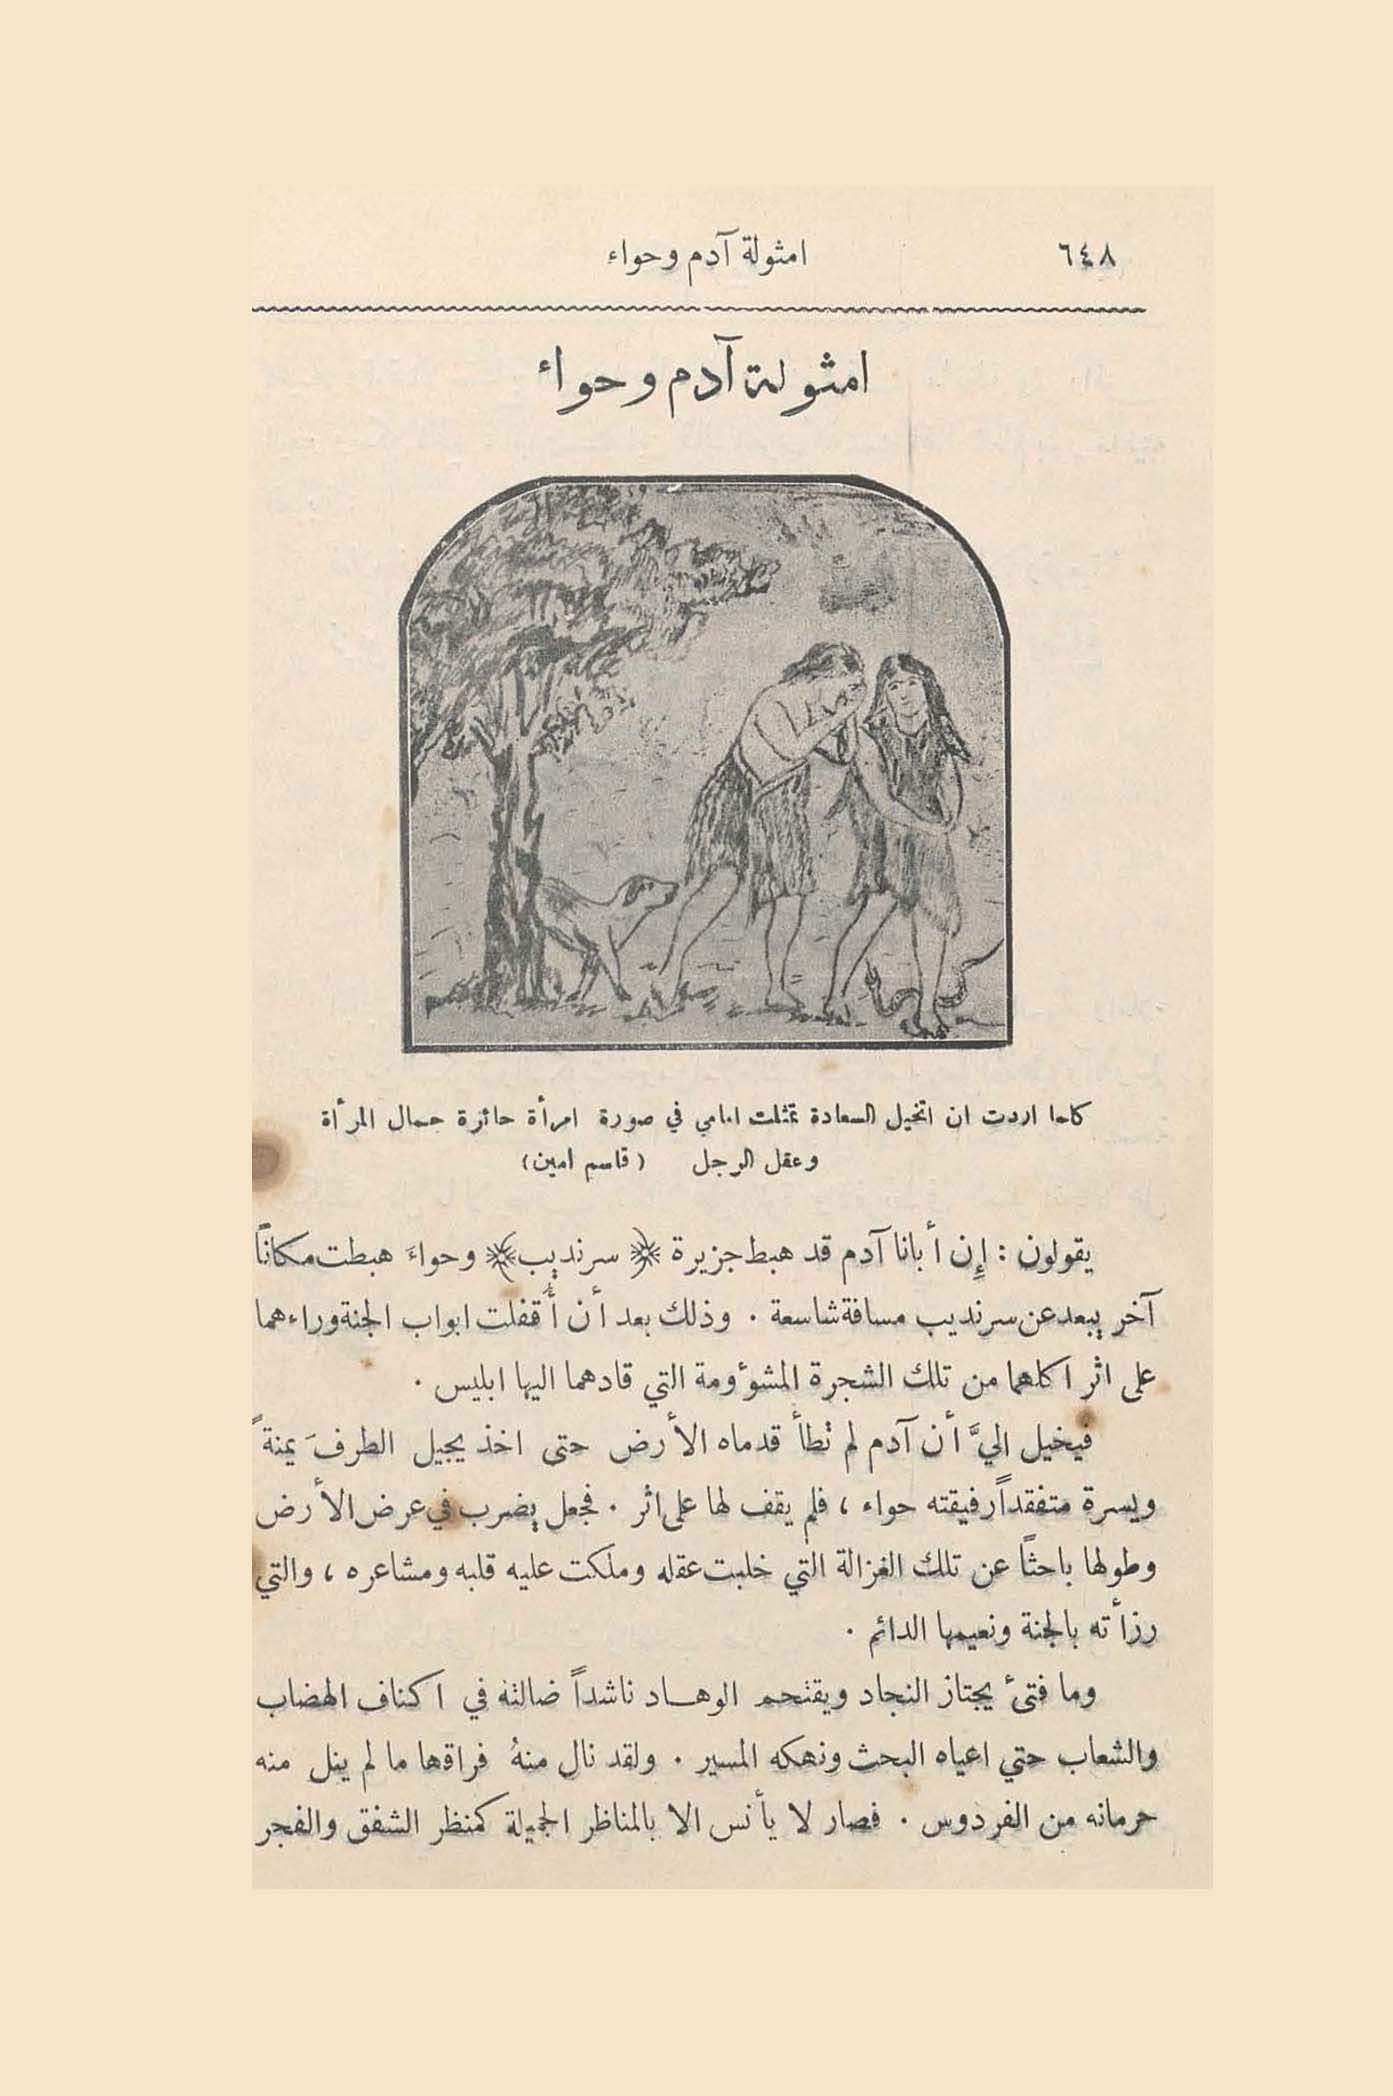 ٦٤٨
امثولة آدم وحواء
امثولة آدم وحواء
كلما اردت ان اتخيل السعادة تمثلت امامي في صورة امرأة حائزة جمال المرأة
وعقل الرجل (قاسم امين)
يقولون : إِن أبانا آدم قد هبط جزيرة ﴿ سرنديب ﴾ وحواءَ هبطت مكاناً
آخر يبعد عن سرنديب مسافة شاسعة . وذلك بعد أن أُقفلت ابواب الجنة وراءهما
على اثر اكلهما من تلك الشجرة المشوٴومة التي قادهما اليها ابليس .
فيخيل اليَّ أن آدم لم تطأ قدماه الأرض حتى اخذ يجيل الطرفَ يمنةً
ويسرة متفقداً رفيقته حواء ، فلم يقف لها على اثر . فجعل يضرب في عرض الأرض
وطولها باحثاً عن تلك الغزالة التي خلبت عقله وملكت عليه قلبه ومشاعره ، والتي
رزأته بالجنة ونعيمها الدائم .
وما فتىء يجتاز النجاد ويقتحم الوهاد ناشداً ضالته في اكناف الهضاب
والشعاب حتي اعياه البحث ونهكه المسير . ولقد نال منهُ فراقها ما لم ينل منه
حرمانه من الفردوس . فصار لا يأنس الا بالمناظر الجميلة كمنظر الشفق والفجر